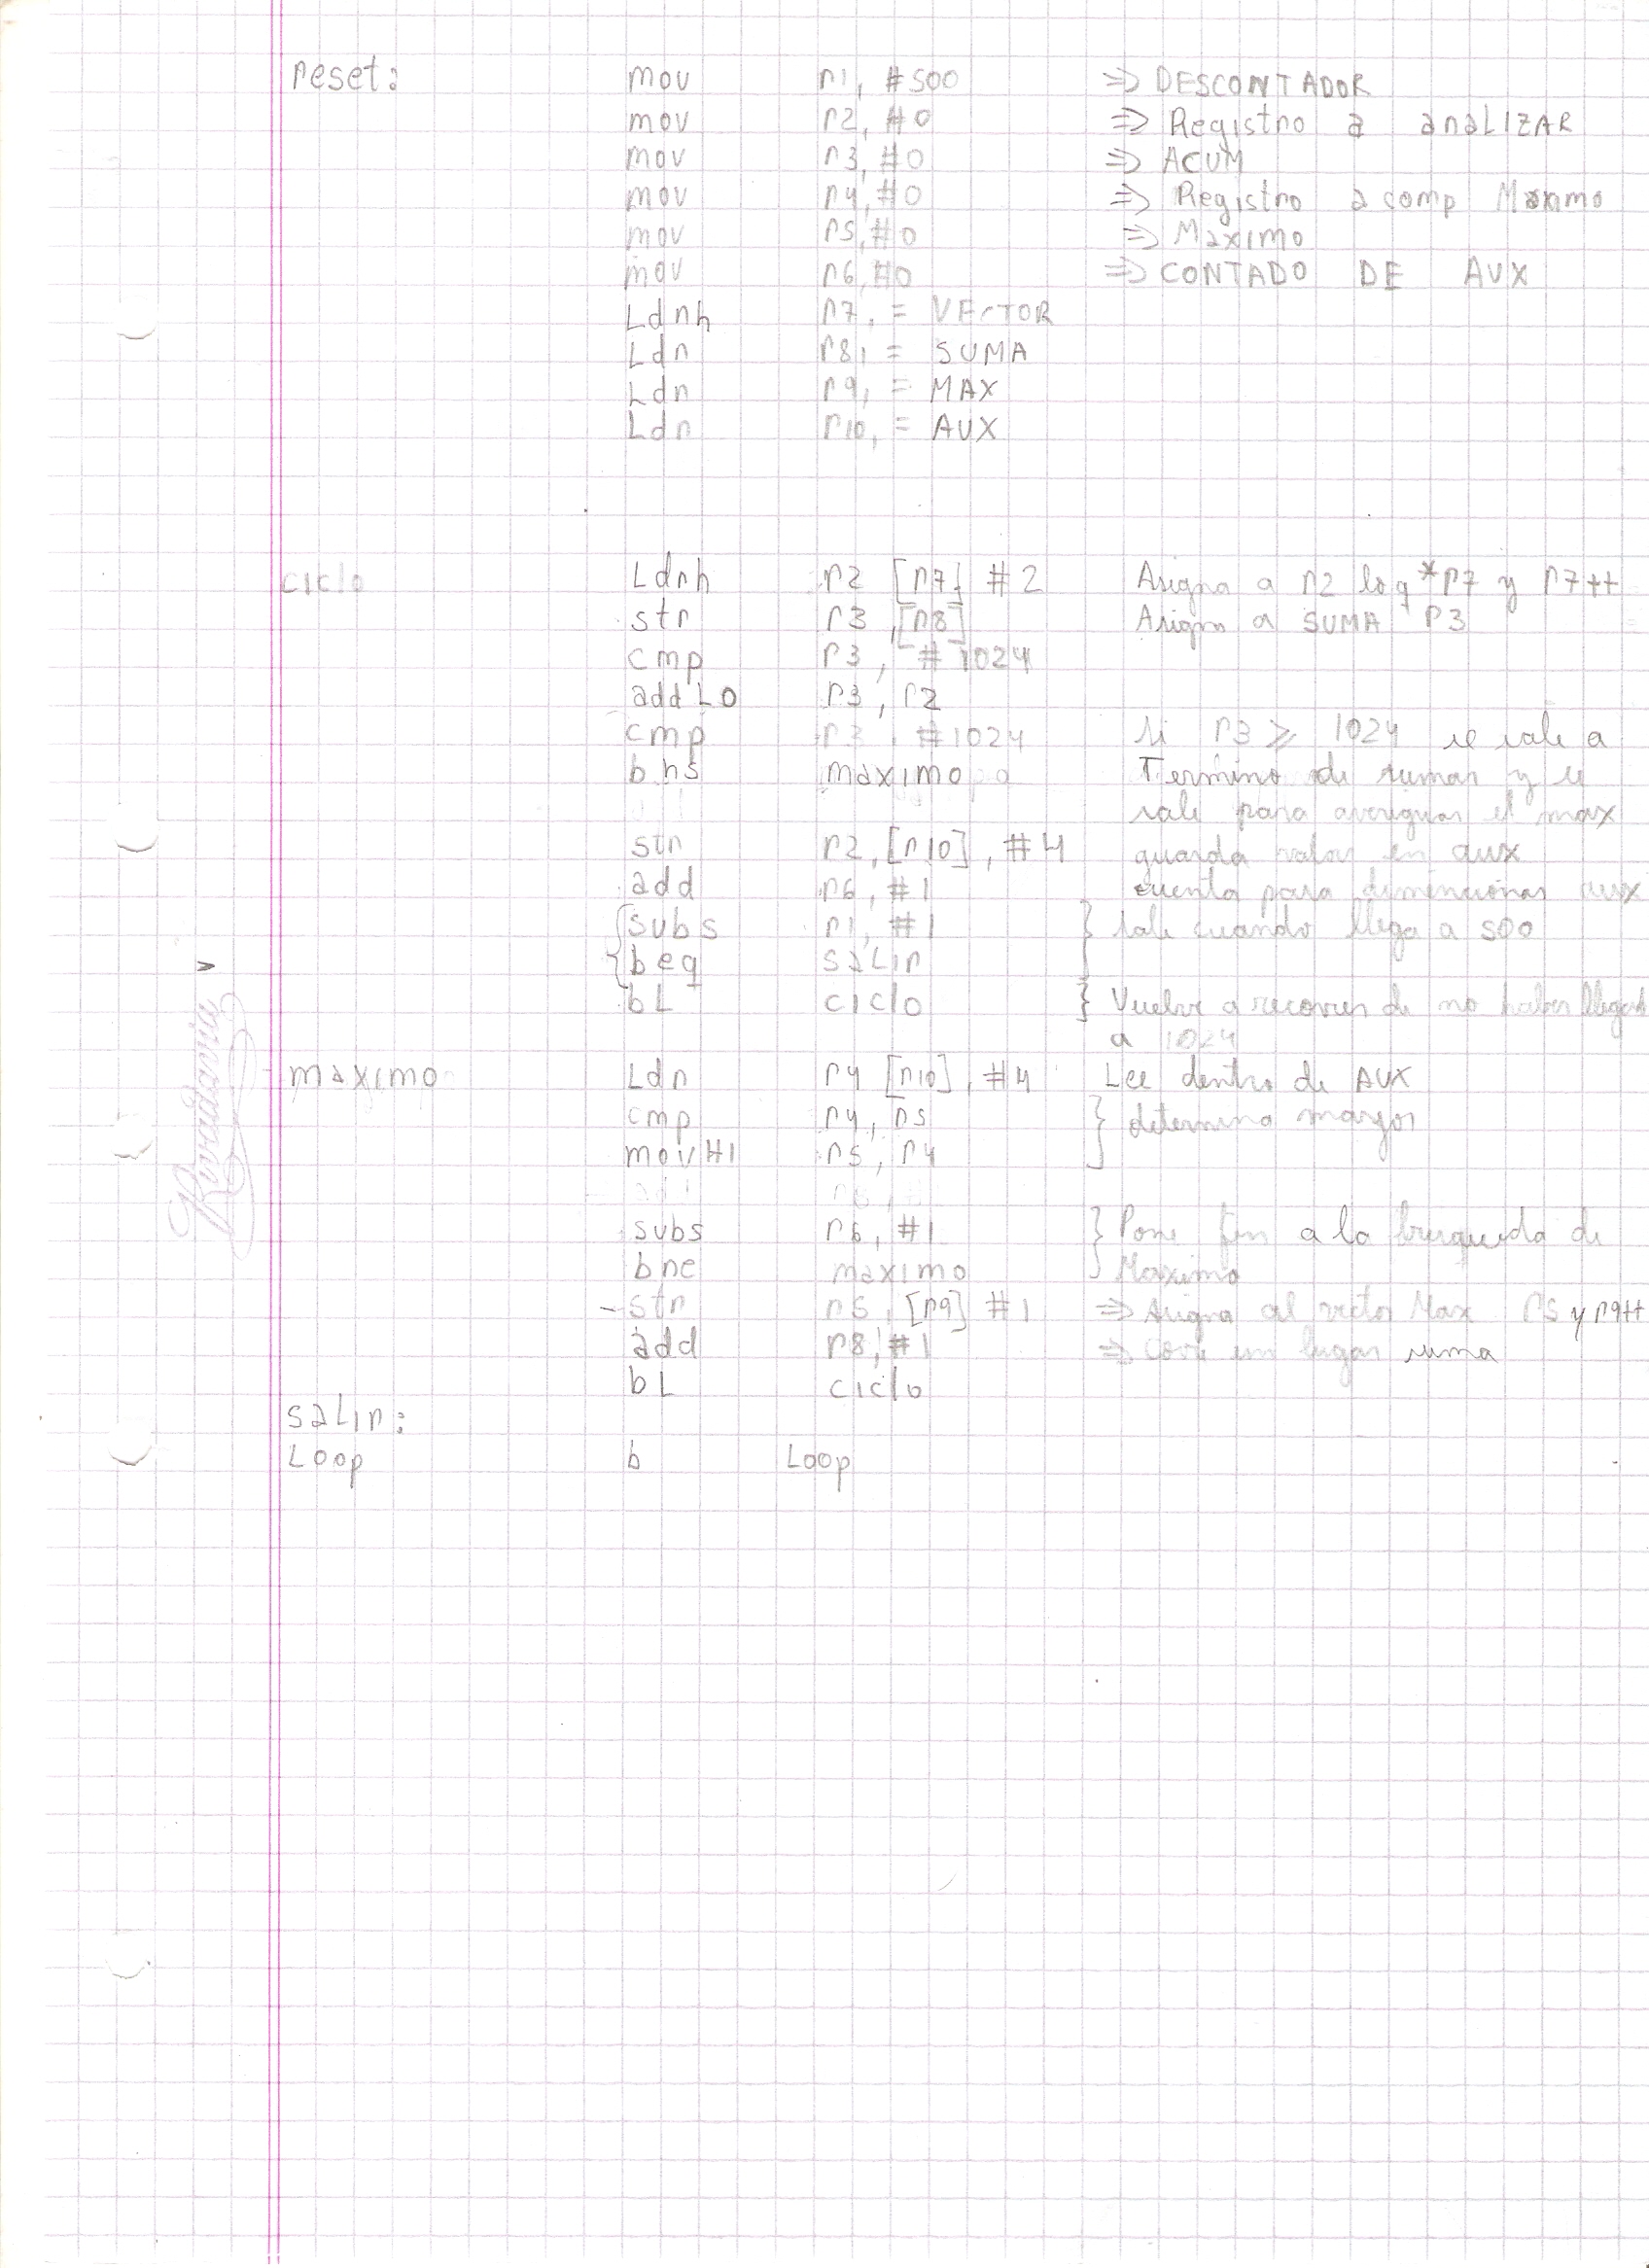 reset: mov r1, #500 => DESCONTADOR
mov r2, #0 => Registro a analIZAR
mov r3, #0 => ACUM
mov r4, #0 => Registro a comp Maximo
mov r5, #0 => Maximo
mov r6, #0 => CONTADO DE AUX
Ldrh r7, = VECTOR
Ldr r8, = SUMA
Ldr r9, = MAX
Ldr r10, = AUX
ciclo Ldrh r2 [r7] #2 Asigna a r2 log *r7 y r7++
str r3, [r8] Asigna a SUMA r3
cmp r3, #1024
addLO r3, r2
cmp r3, #1024 Si r3 ≥ 1024 se sale a
bhs maximo Termino de sumar y se
sale para averiguar el max
str r2, [r10], #4 guarda valor en aux
add r6, #1 cuenta para dimencionar aux
subs r1, #1 } sale cuando llega a 500
beq salir
bL ciclo } Vuelve a recorrer de no haber llegado
a 1024
maximo Ldr r4 [r10], #4 Lee dentro de AUX
cmp r4, r5 } determina mayor
movHI r5, r4
subs r6, #1 } Pone fin a la busqueda de
bne maximo Maximo
- str r5, [r9] #1 => Asigna al vector Max r5 y r9++
add r8, #1 => Corre un lugar suma
bL ciclo
salir:
Loop b Loop
Rivadavia